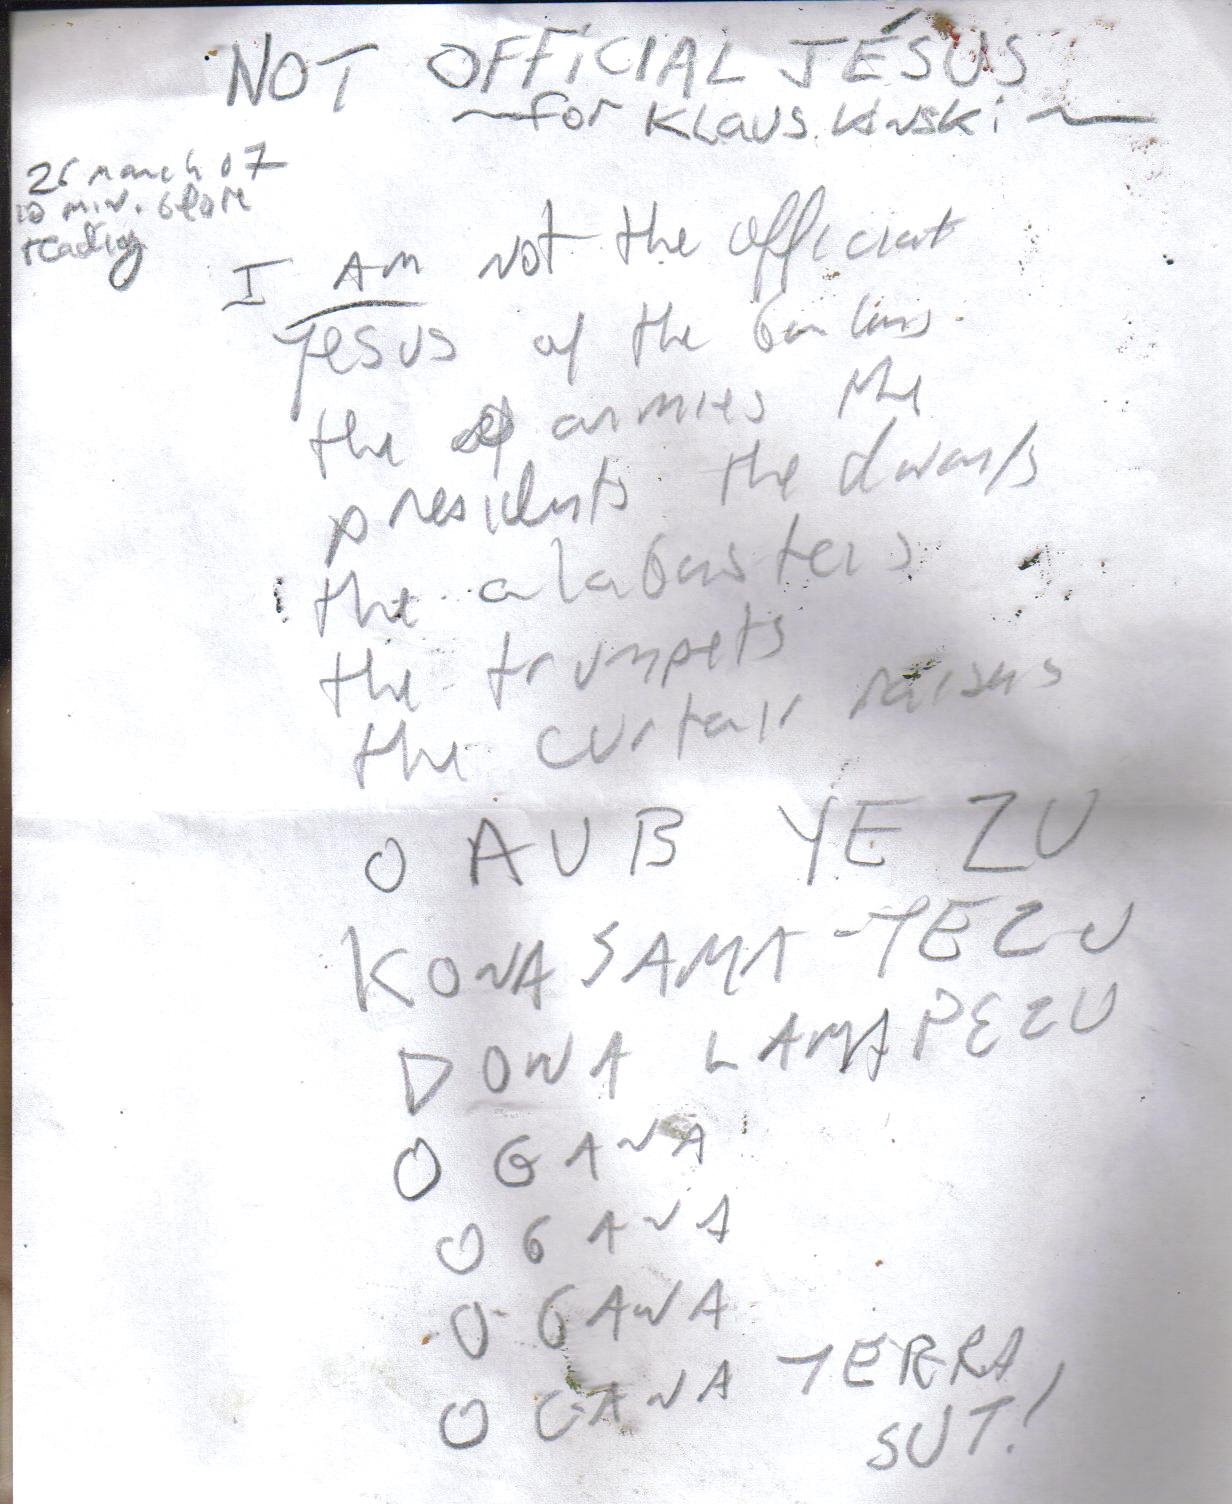 NOT OFFiCIAL JÉSUS
~for KLaus Kinski~
26 march 07
10 min. before
reading
I AM not the official
Jesus of the
the armies the
presidents the dwarfs
the alabasters
the trumpets
the curtain raisers
O AUB YEZU
KONA SAMA-YEZU
DOWA LAMAPEZU
O GANA
O GANA
O GAWA
O GANA TERRA
SUT!